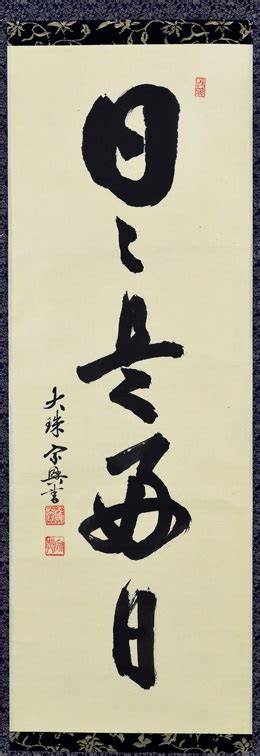 日々是好日
大珠宗興書